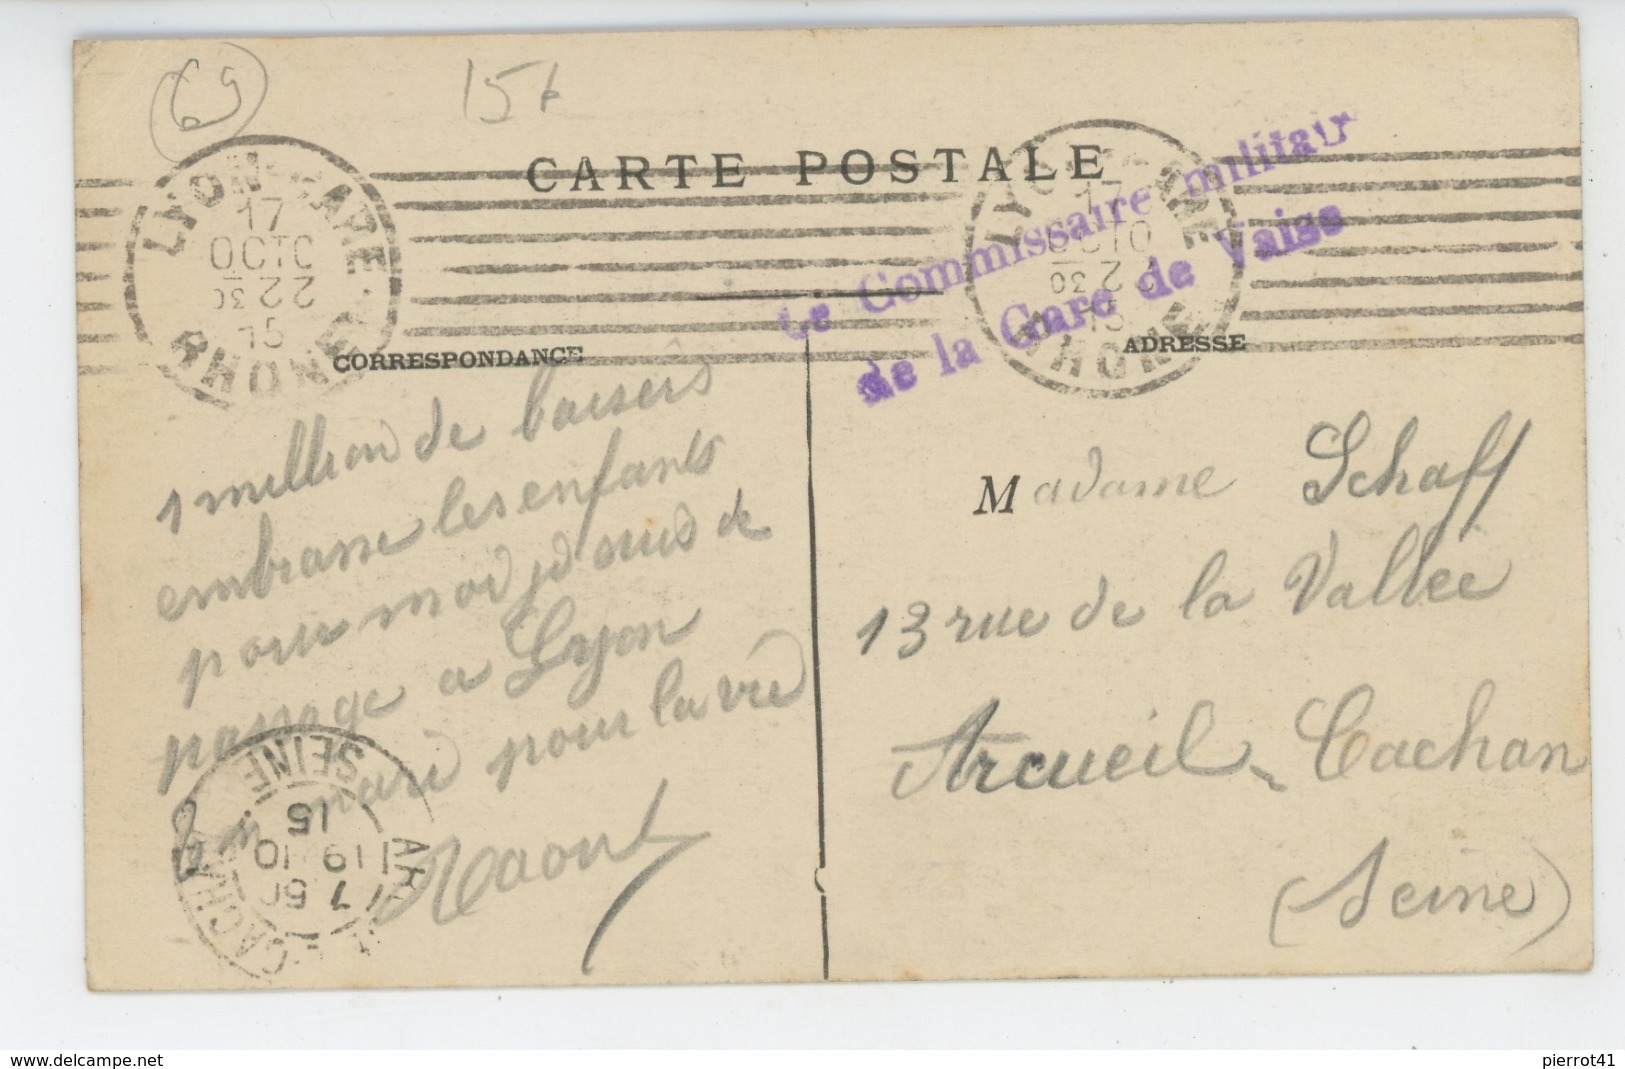 69
15t
CARTE POSTALE
LYON-GARE
17
OCTO
22 30
15
RHONE
LYON-GARE
17
OCTO
22 30
15
RHONE
Le Commissaire militair
de la Gare de Vaise
CORRESPONDANCE
ADRESSE
1 million de baisers
embrasse les enfants
pour moi je suis de
passage a Lyon
ton mari pour la vie
Raoul
Madame Schaff
13 rue de la Vallée
Arcueil-Cachan
(Seine)
ARCUEIL-CACHAN
7 50
19 10
15
SEINE
delcampe.net
pierrot41